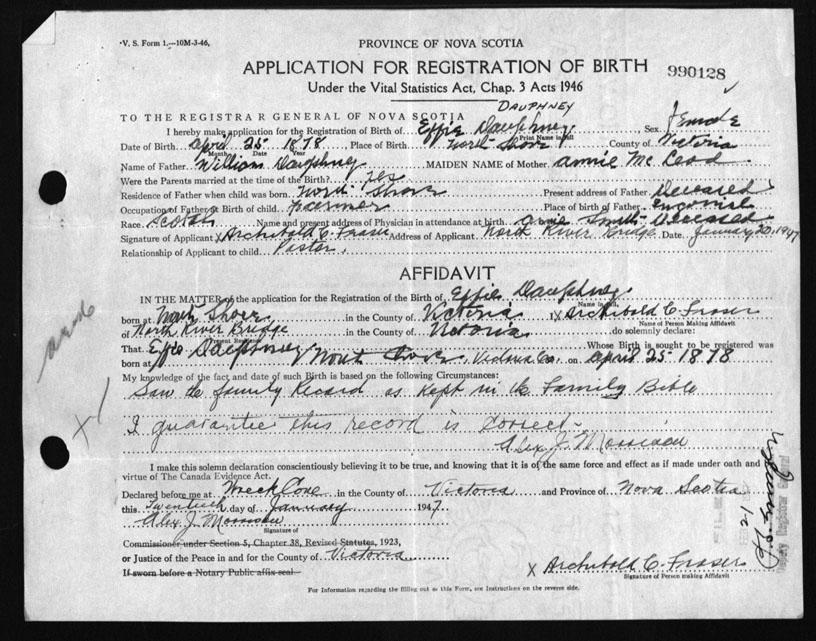 V. S. Form 1.—10M-3-46.
PROVINCE OF NOVA SCOTIA
APPLICATION FOR REGISTRATION OF BIRTH
990128
Under the Vital Statistics Act, Chap. 3 Acts 1946
DAUPHNEY
TO THE REGISTRAR GENERAL OF NOVA SCOTIA
I hereby make application for the Registration of Birth of Effie Dauphney Sex Female
Print Name in full
Date of Birth April 25 1878 Place of Birth North Shore County of Victoria
Month Date Year
Name of Father William Dauphney MAIDEN NAME of Mother Annie McLeod
Were the Parents married at the time of the Birth? Yes
Residence of Father when child was born North Shore Present address of Father Deceased
Occupation of Father at Birth of child Farmer Place of birth of Father
Race Scotch Name and present address of Physician in attendance at birth Smith Deceased
Signature of Applicant X Archibald C. Fraser Address of Applicant North River Bridge Date January 20, 1947
Relationship of Applicant to child Pastor.
AFFIDAVIT
IN THE MATTER of the application for the Registration of Birth of Effie Dauphney
Name in full,
born at North Shore in the County of Victoria I, Archibald C. Fraser
Name of Person Making Affidavit
of North River Bridge in the County of Victoria do solemnly declare:
Present Residence
That Effie Dauphney Whose Birth is sought to be registered was
born at North Shore, Victoria Co. on April 25 1878
My knowledge of the fact and date of such Birth is based on the following Circumstances:
Saw the family Record as kept in the Family Bible
I guarantee this record is correct.
Alex. J. Morrison
I make this solemn declaration conscientiously believing it to be true, and knowing that it is of the same force and effect as if made under oath and
virtue of The Canada Evidence Act.
Declared before me at Wreck Cove in the County of Victoria and Province of Nova Scotia
this Twentieth day of January 1947
Alex. J. Morrison
Signature of
Commissioner under Section 5, Chapter 38, Revised Statutes, 1923,
or Justice of the Peace in and for the County of Victoria
If sworn before a Notary Public affix seal
X Archibald C. Fraser
Signature of Person making Affidavit
For Information regarding the filling out of this Form, see Instructions on the reverse side.
Deputy Registrar General